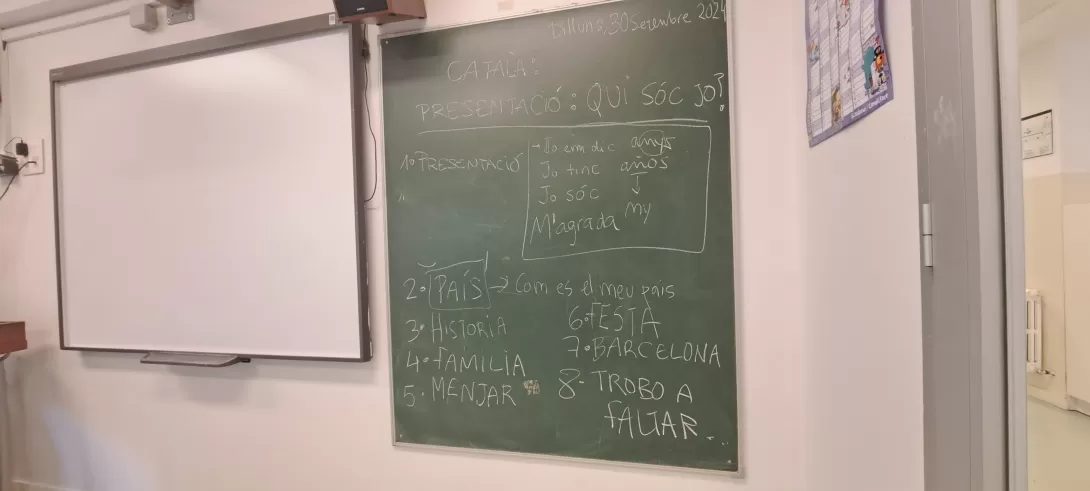 Dilluns, 30 Setembre 2024
CATALÀ:
PRESENTACIÓ: QUI SÓC JO?
1. PRESENTACIÓ
→ Jo em dic anys
Jo tinc años
Jo sóc ↓
M'agrada ny
2. PAÍS → Com es el meu pais
3. HISTORIA
4. FAMILIA
5. MENJAR
6. FESTA
7. BARCELONA
8- TROBO A
FALTAR...